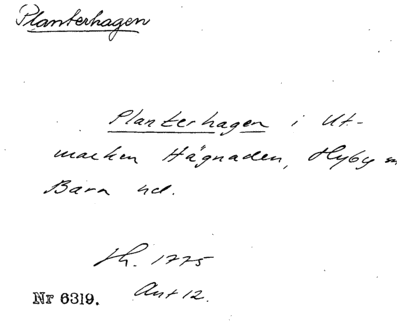 Planterhagen
Planterhagen i Ut-
marken Hägnaden, Hyby sn
Bara hd.
Jh. 1775
Akt 12.
Nr 6319.